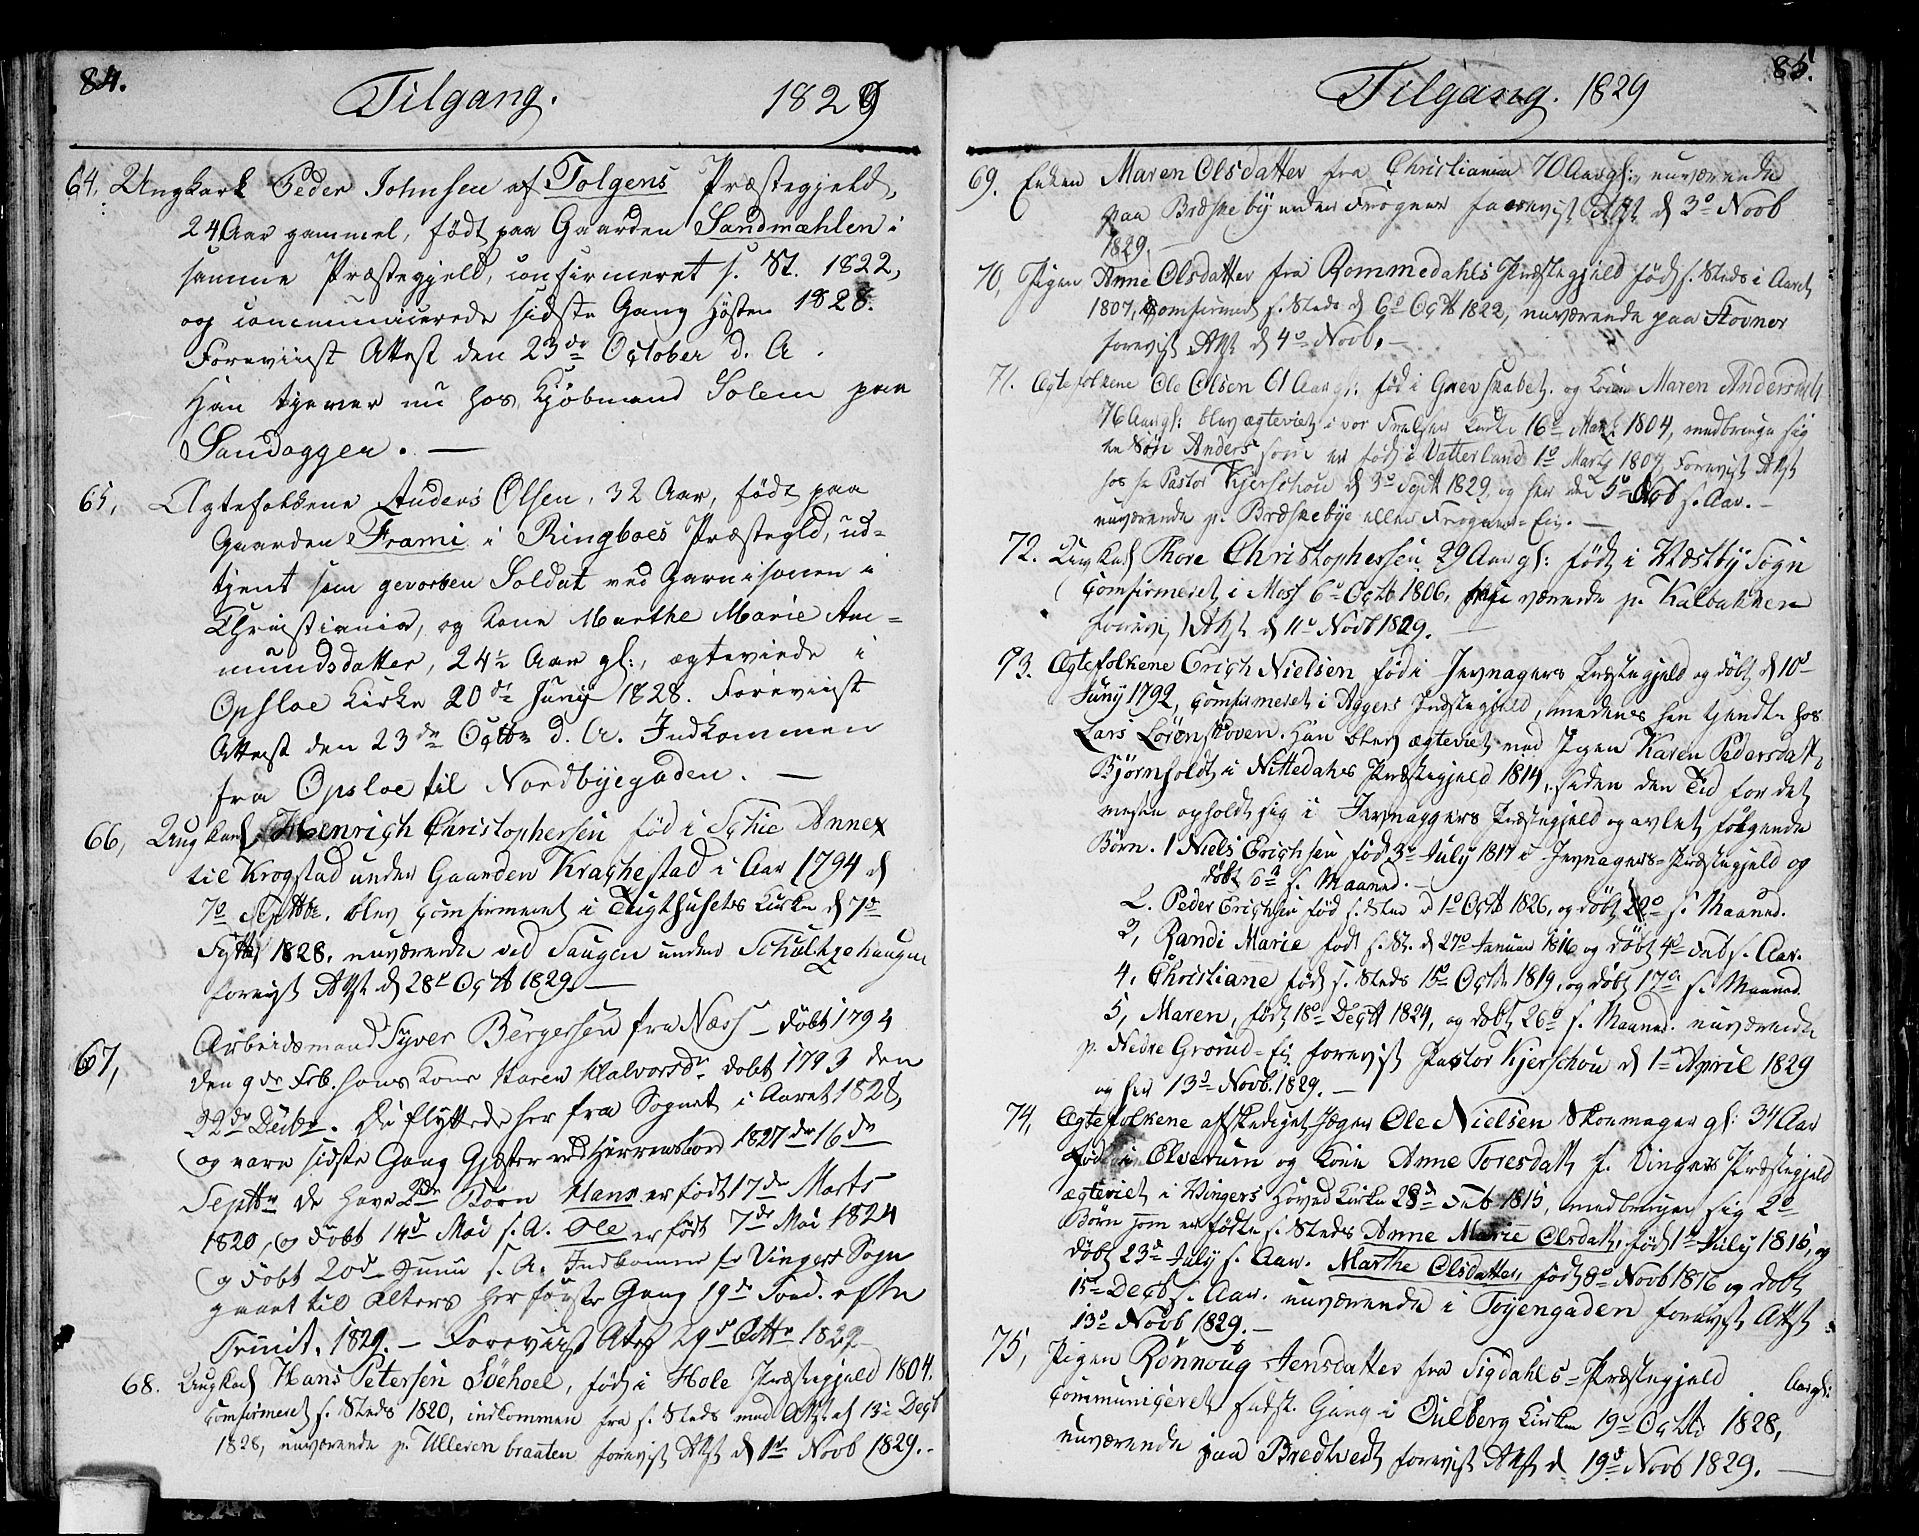 84.
Tilgang. 1829
64. Ungkarl Peder Johnsen af Tolgens Præstegjeld,
24 Aar gammel, født paa Gaarden Sandmæhlen i
samme Præstegjeld, confirmeret s. St. 1822,
og communicerede sidste Gang Høsten 1828.
Foreviist Attest den 23de October d. A.
Han tjener nu hos Kjøbmand Solem paa
Sandaggen.
65, Ægtefolkene Anders Olsen, 32 Aar, født paa
Gaarden Frami i Ringboes Præstegld, ud-
tjent som gevorben Soldat ved Garnisonen i
Christiania, og Kone Marthe Marie Am-
mundsdatter, 24½ Aar gl:, ægteviede i
Opsloe Kirke 20de Junij 1828. Foreviist
Attest den 23de Octbr d. A. Indkommen
fra Opsloe til Nordbyegaden.
66, Ungkarl Henrich Christophersen fød i Schie Annex
til Krogstad under Gaarden Krachestad i Aar 1794 d
7de Septbr. blev Confirmeret i Tugthusets Kirke d 7de
1828, nuværende ved Saugen under Schultzehaugen
forevist Attst d 28de Octb 1829.
67, Arbeidsmand Syver Bergersen fra Næss - døbt 1794
den 9de Feb. hans Kone Karen Halvorsdr døbt 1793 den
22de Decbr. De flyttede her fra Sognet i Aaret 1828,
og vare sidste Gang Gjæster ved Herrens bord 1827 den 16de
Septbr de have 2de Børn Hans er født 17de Marts
1820, og døbt 14de Mai s. A. Ole er født 7de Mai 1824
og døbt 20de Juni s. A. Indkomne fr Vingers Sogn
gaaet til Alters her første Gang 19de Sønd. efter
Trinit. 1829. - Foreviist Atest 29de Octbr 1829
68. Ungkarl Hans Petersen Søehoel, født i Hole Præstegjeld 1804.
Confirmeret s. Steds 1820, indkommen fra s. Steds med Attst af 13de Decb
1828, nuværende p. Ulleren braaten forevist Attst d 1ste Novb 1829.
85.
Tilgang. 1829
69. Enken Maren Olsdatter fra Christiania 70 Aar gl: nuværende
paa Briskeby under Frogner forevist Attst d 3de Novb
1829.
70, Pigen Anne Olsdatter fra Rommedahls Præstegjeld født s. Steds i Aaret
1807, Confirmeret s. Steds d 6de Octb 1822, nuværende paa Stovner
forevist Attst d 4de Novb.
71. Ægtefolkene Ole Olsen 61 Aar gl: fød i Grevskabet, og Kone Maren Andersdatt
76 Aar gl: blev ægteviet i vor Frelsers Kirke 16de Martz 1804, medbringe sig
en Søn Anders som er født i Vatterland 1de Martz 1807 Forevist Attst
hos Hr Pastor Kjerschou d 3de Septb 1829, og her den 5de Novb s. Aar.
nuværende p. Briskebye eller Frogner-Eie.
72. Ungkarl Thore Christophersen 29 Aar gl: født i Vestby Sogn
Confirmeret i Moss 6de Octb 1806, nu værende p. Kalbakken
forevist Attst d 11de Novb 1829.
73. Ægtefolkene Erich Nielsen fød i Jevnagers Præstegjeld og døbt d 10de
Junij 1792, Confirmeret i Aggers Præstegjeld, medens han tjendte hos
Lars Lørenskoven. Han blev ægteviet med Pigen Karen Pedersdatt,
Bjørnholdt i Nittedahls Præstegjeld 1814, siden den Tid for det
mesten opholdt sig i Jevnaggers Præstegjeld og avlet følgende
Børn. 1 Niels Erichsen født 3de July 1817 i Jevnagers-Præstegjeld og
døbt 6te s. Maaned.
2. Peder Erichsen fød s. Sted d 1de Octb 1826, og døbt 22de s. Maaned.
3, Randi Marie født s. St. d 27de Januar 1816 og døbt 4de Feb s. Aar.
4, Christiane født s. Steds 15de Octbr 1819, og døbt 17de s. Maaned.
5, Maren, født 18de Decb 1824, og døbt 26de s. Maaned. nuværende
p. Nedre Grorud-Eie forevist Pastor Kjerschou d 1ste April 1829
og her 13de Novb. 1829.
74, Ægtefolkene afskediget Jæger Ole Nielsen Skomager gl: 34 Aar
født i Elverum og Kone Anne Toresdatt, f. Vingers Præstegjeld
ægteviet i Vingers Hoved Kirke 28de Feb 1815, medbringer sig 2de
Børn som er fødte s. Steds Anne Marie Olsdatt, født 1de July 1815, og
døbt 23de July s. Aar. Marthe Olsdatter, født 8de Novb 1816 og døbt
15de Decb s. Aar. nuværende i Tøyengaden forevist Attst
13de Novb 1829.
75, Pigen Rønnoug Jensdatter fra Sigdahls-Præstegjeld Aar gl:
Communiceret sidst. Gang i Oulberg Kirke 19de Octb 1828,
nuværende paa Bredtvedt forevist Attst d 19de Novb 1829.